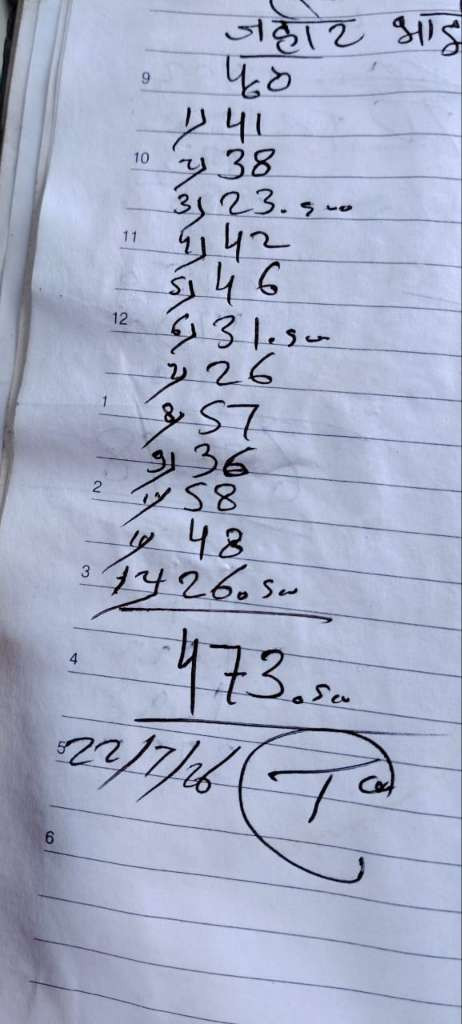 जहीर भाई
9
1) 41
10 2) 38
3) 23.500
11 4) 42
5) 46
12 6) 31.500
7) 26
1 8) 57
9) 36
2 10) 58
11) 48
3 12) 26.500
4 473.500
5 22/7/26
6